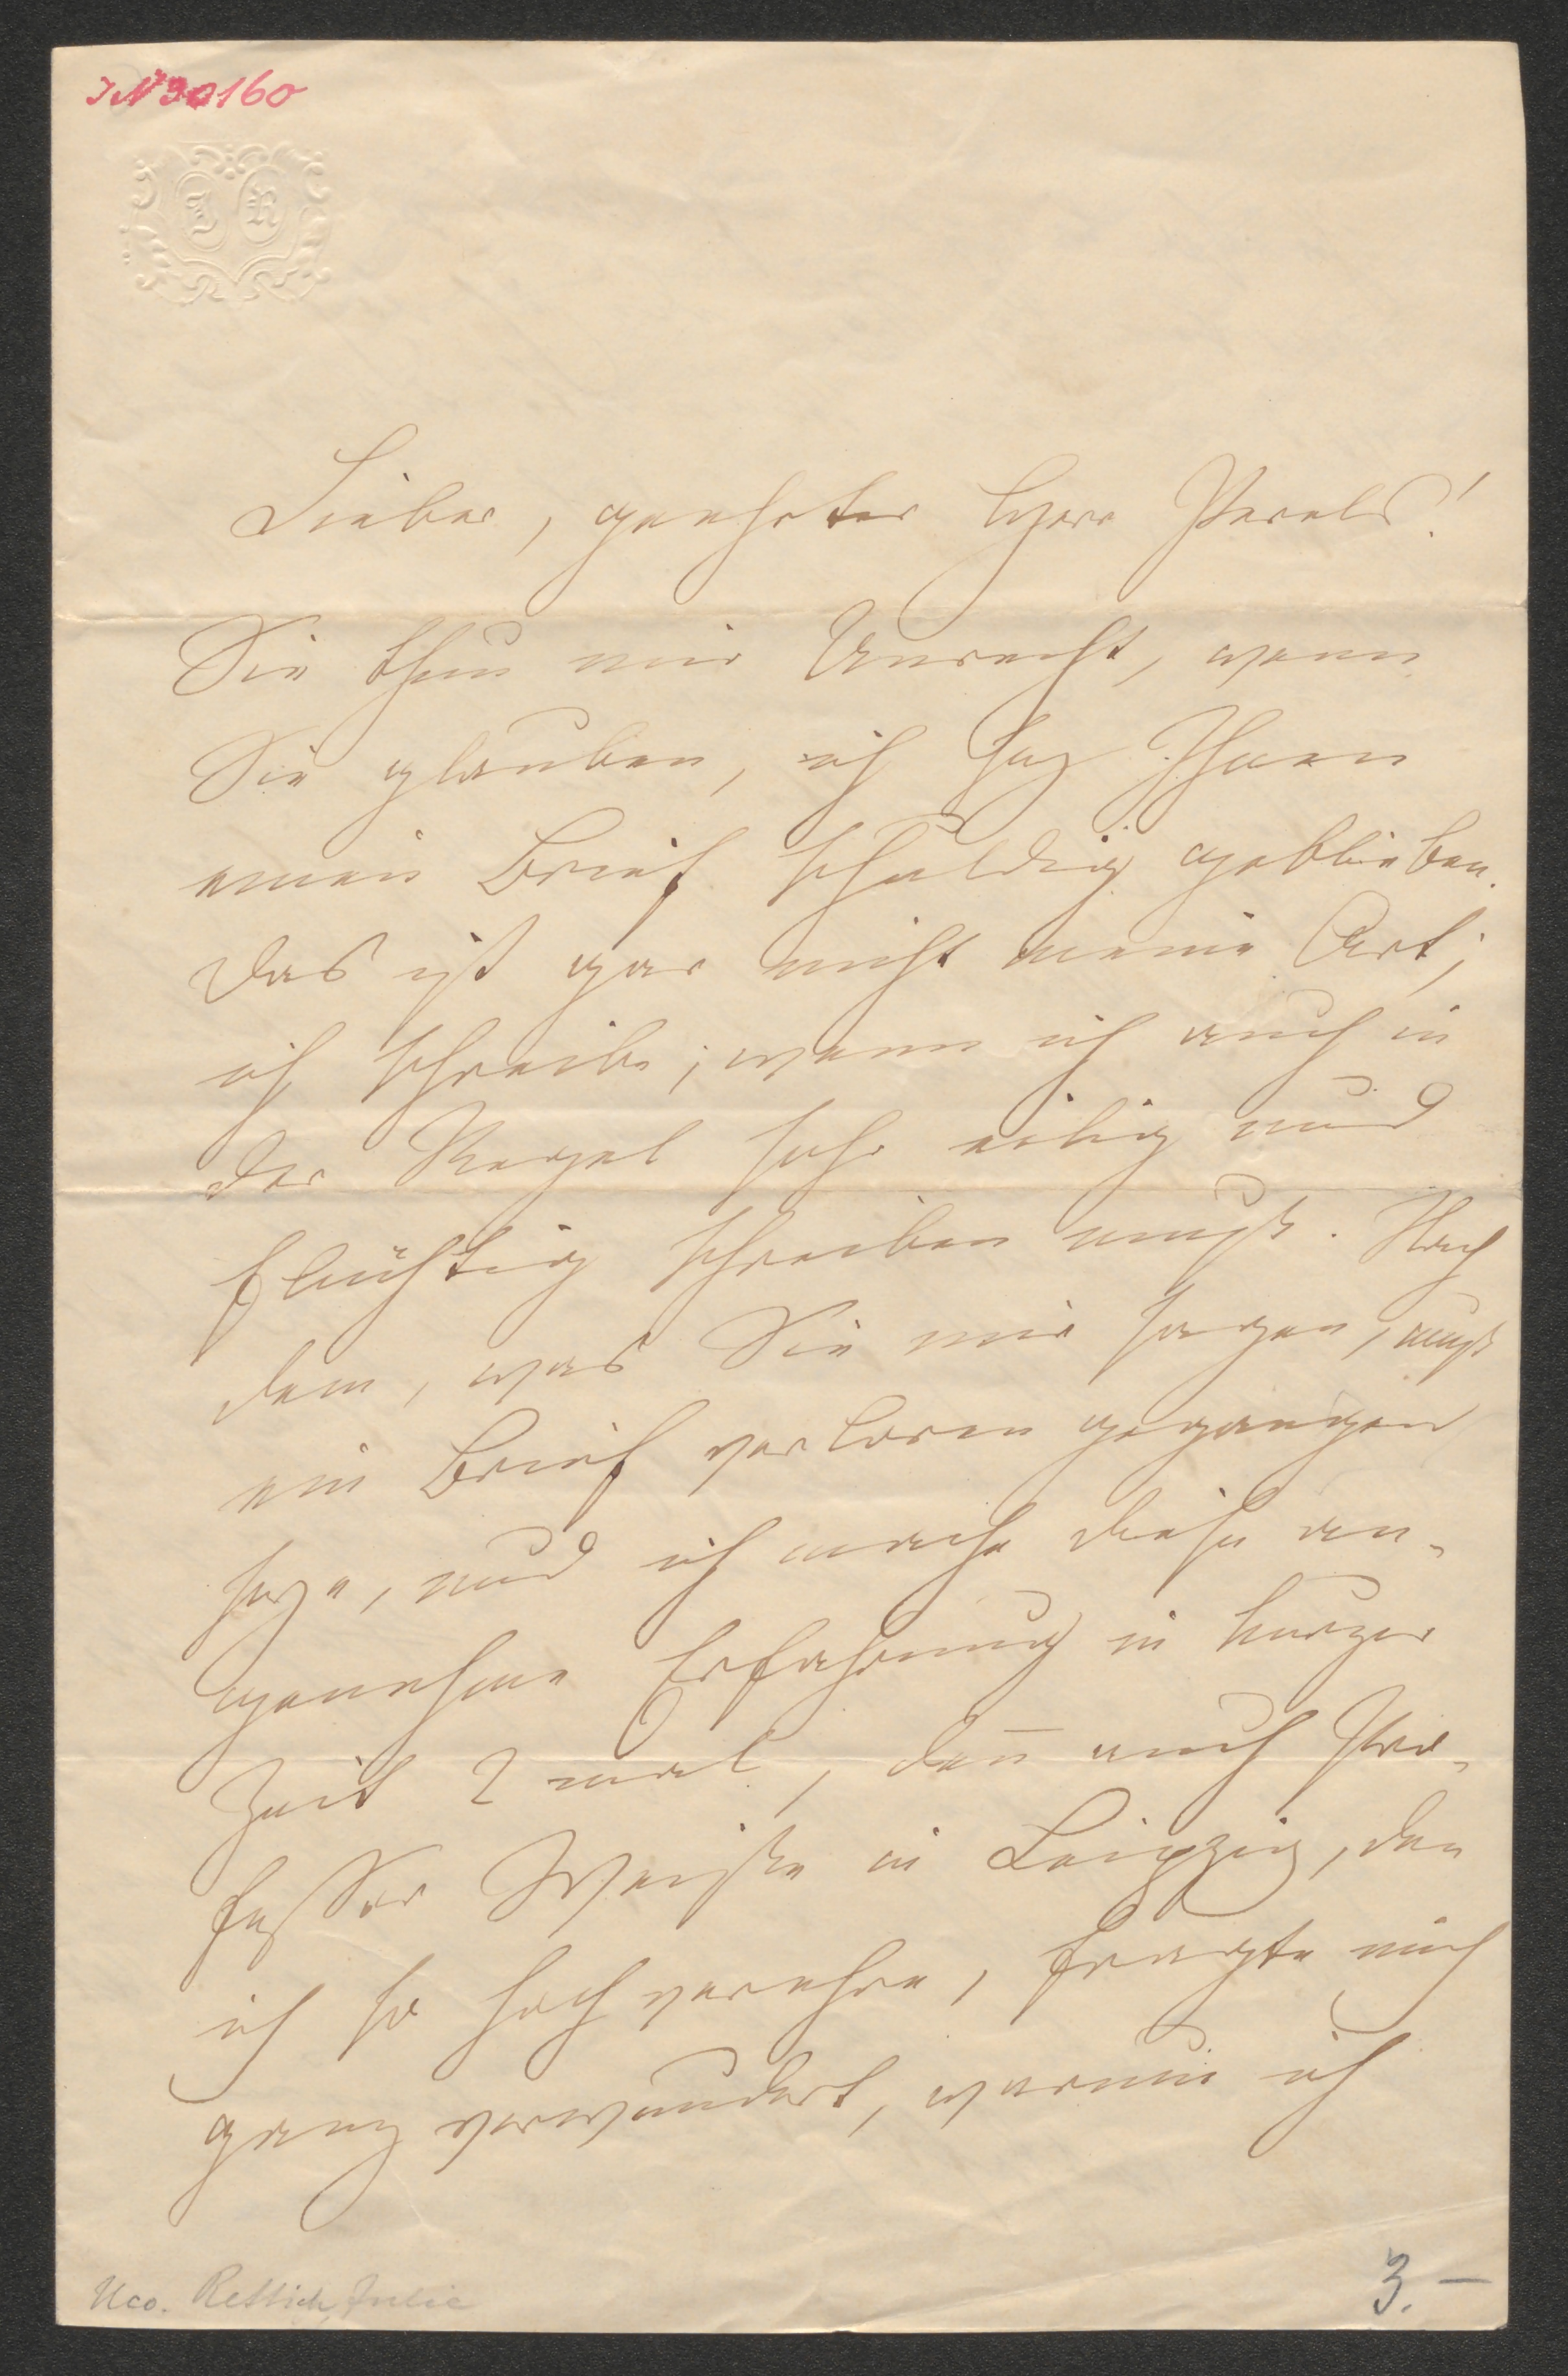 JN 30160
J R
Lieber, geehrter Herr Perels!
Sie thun mir Unrecht, wenn
Sie glauben, ich sey Ihnen
einen Brief schuldig geblieben.
Das ist gar nicht meine Art;
ich schreibe; wenn ich auch in
der Regel sehr eilig und
flüchtig schreiben muß. Nach
dem, was Sie mir sagen, muß
ein Brief verloren gegangen
seyn, und ich mache diese an-
genehme Erfahrung in kurzer
Zeit 2 mal, den̄ auch Pro-
fessor Weiße in Leipzig, den
ich so hoch verehre, fragte mich
ganz verwundert, warum ich
Rettich Julie
3.–